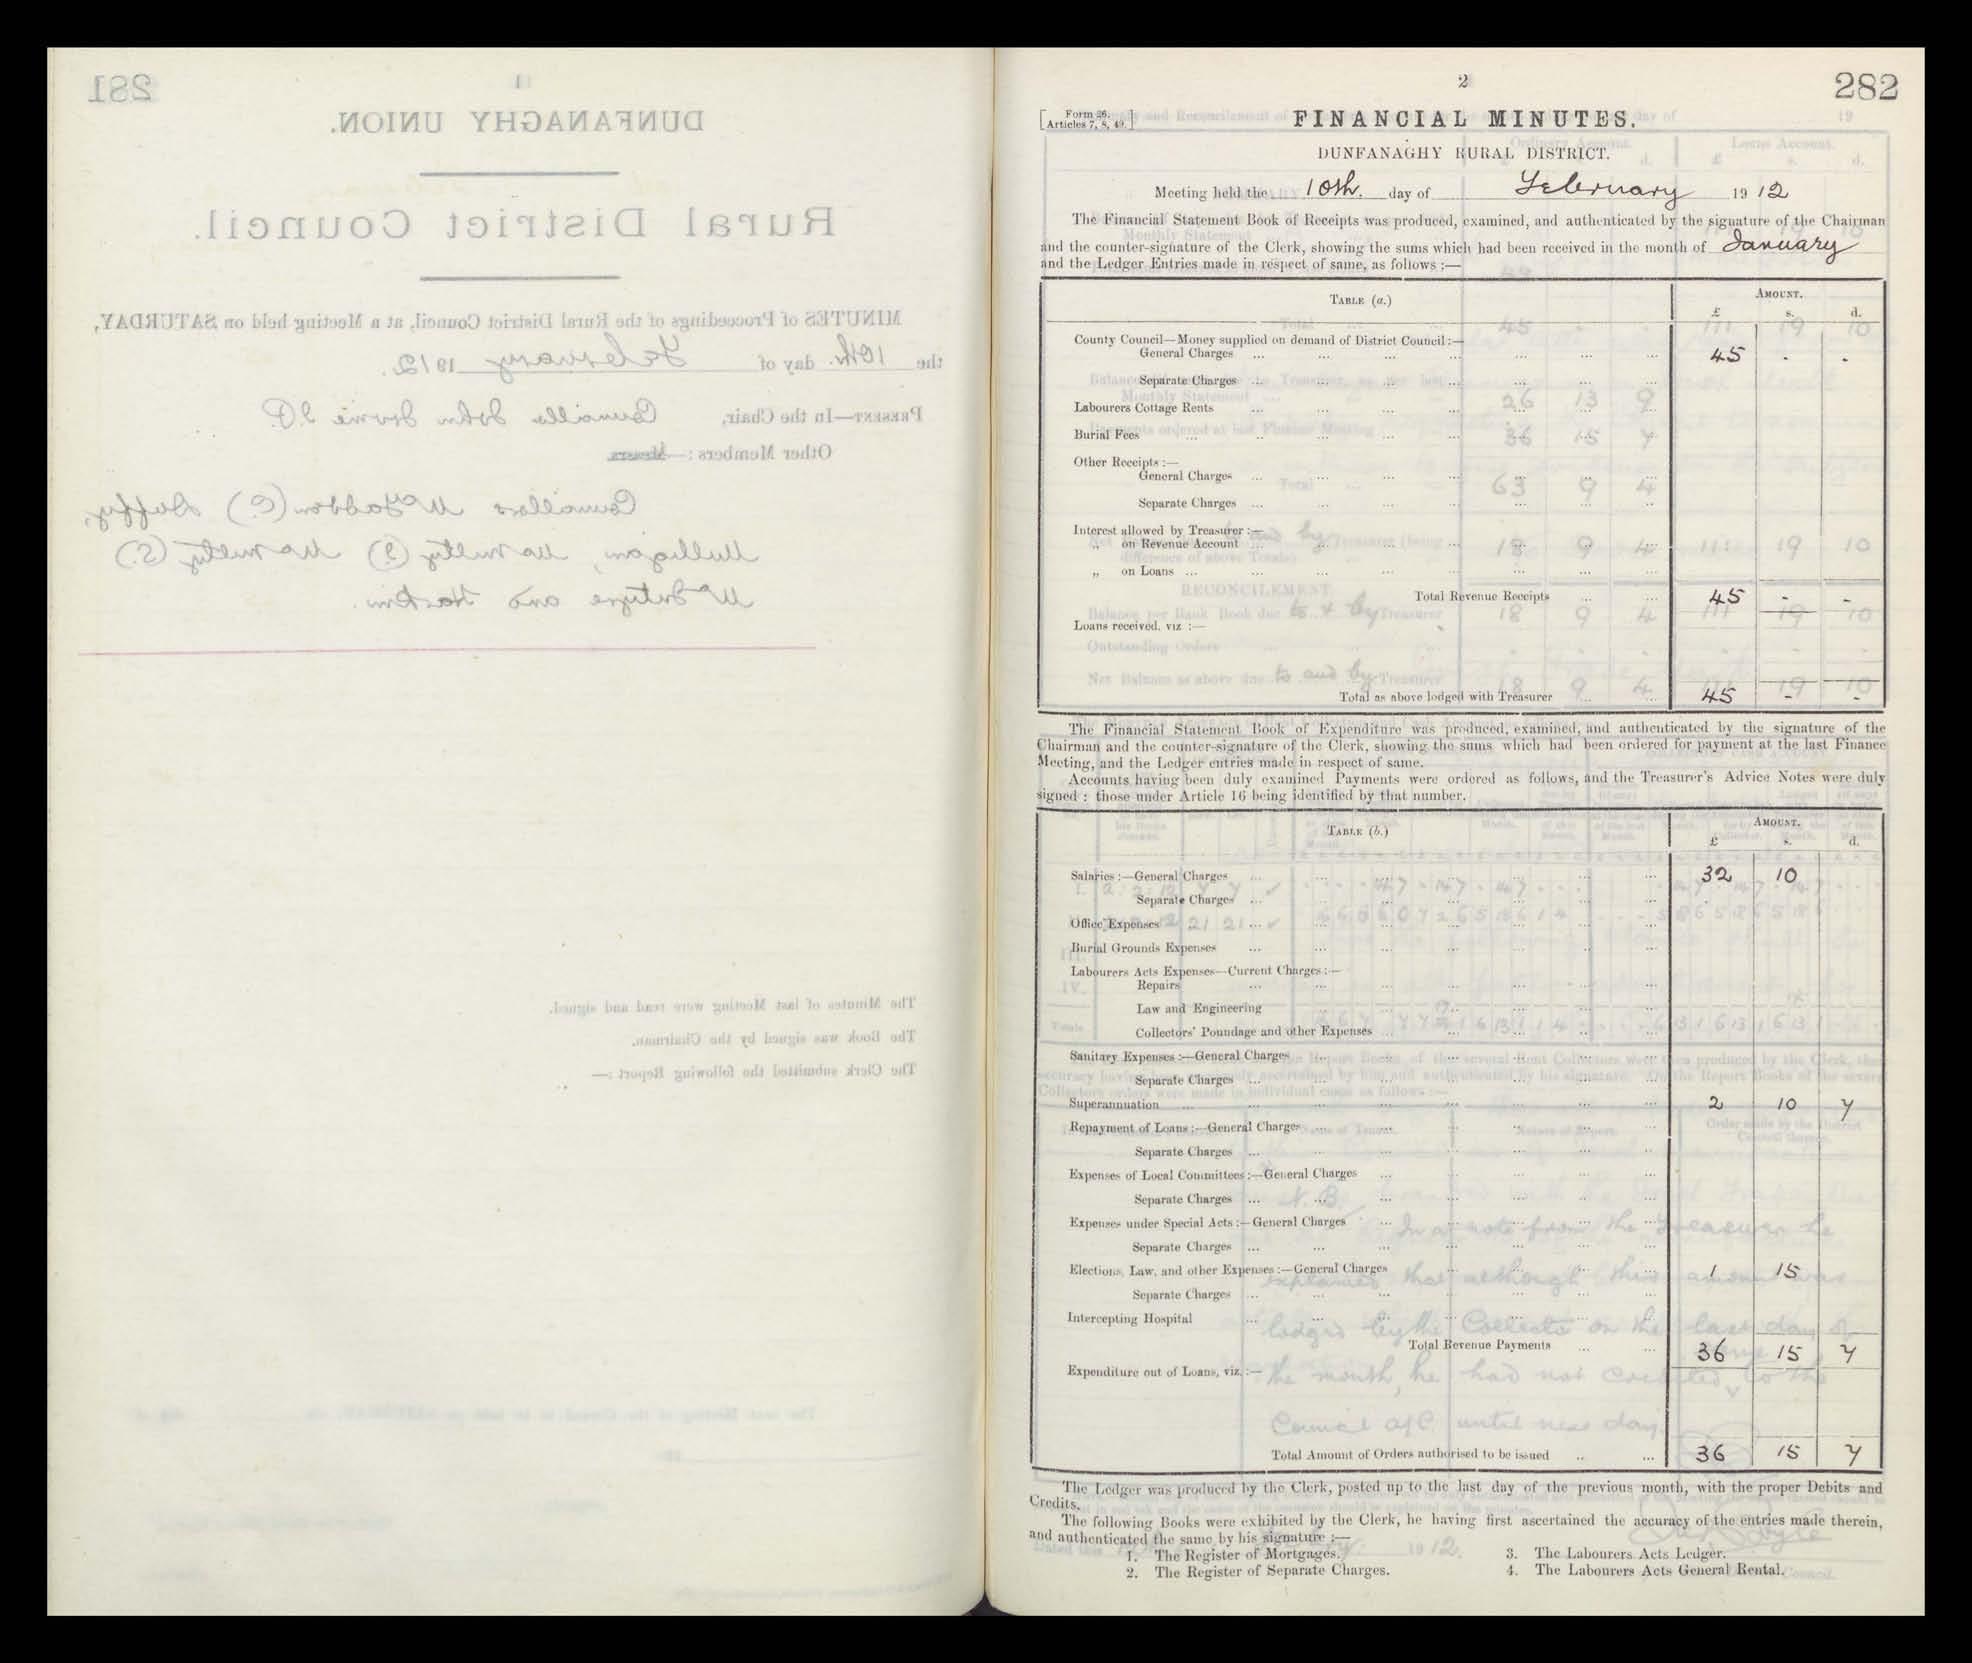 281
1
DUNFANAGHY UNION.
Rural District Council.
MINUTES of Proceedings of the Rural District Council, at a Meeting held on SATURDAY,
the 10th. day of February 1912.
PRESENT—In the Chair, Councillo John J.P.
Other Members :— Messrs.
Councillors McFadden (C.) Duffy,
Mulligan, (J) (S.)
McIntyre and Harkin.
The Minutes of last Meeting were read and signed.
The Book was signed by the Chairman.
The Clerk submitted the following Report :—
2
282
[Form 26. Articles 7, 8, 49.]
FINANCIAL MINUTES.
DUNFANAGHY RURAL DISTRICT.
Meeting held the 10th. day of February 1912
The Financial Statement Book of Receipts was produced, examined, and authenticated by the signature of the Chairman
and the counter-signature of the Clerk, showing the sums which had been received in the month of January
and the Ledger Entries made in respect of same, as follows :—
TABLE (a.) AMOUNT.
£ s. d.
County Council—Money supplied on demand of District Council :—
General Charges ... 45 - -
Separate Charges ...
Labourers Cottage Rents ...
Burial Fees ...
Other Receipts :—
General Charges ...
Separate Charges ...
Interest allowed by Treasurer :—
„ on Revenue Account ...
„ on Loans ...
Total Revenue Receipts ... 45 - -
Loans received, viz :—
Total as above lodged with Treasurer ... 45 - -
The Financial Statement Book of Expenditure was produced, examined, and authenticated by the signature of the
Chairman and the counter-signature of the Clerk, showing the sums which had been ordered for payment at the last Finance
Meeting, and the Ledger entries made in respect of same.
Accounts having been duly examined Payments were ordered as follows, and the Treasurer's Advice Notes were duly
signed : those under Article 16 being identified by that number.
TABLE (b.) AMOUNT.
£ s. d.
Salaries :—General Charges ... 32 10
Separate Charges ...
Office Expenses ...
Burial Grounds Expenses ...
Labourers Acts Expenses—Current Charges :—
Repairs ...
Law and Engineering ...
Collectors' Poundage and other Expenses ...
Sanitary Expenses :—General Charges ...
Separate Charges ...
Superannuation ... 2 10 7
Repayment of Loans :—General Charges ...
Separate Charges ...
Expenses of Local Committees :—General Charges ...
Separate Charges ...
Expenses under Special Acts :—General Charges ...
Separate Charges ...
Elections, Law, and other Expenses :—General Charges ... 1 15
Separate Charges ...
Intercepting Hospital ...
Total Revenue Payments ... 36 15 7
Expenditure out of Loans, viz. :—
Total Amount of Orders authorised to be issued ... 36 15 7
The Ledger was produced by the Clerk, posted up to the last day of the previous month, with the proper Debits and
Credits.
The following Books were exhibited by the Clerk, he having first ascertained the accuracy of the entries made therein,
and authenticated the same by his signature :—
1. The Register of Mortgages. 3. The Labourers Acts Ledger.
2. The Register of Separate Charges. 4. The Labourers Acts General Rental.